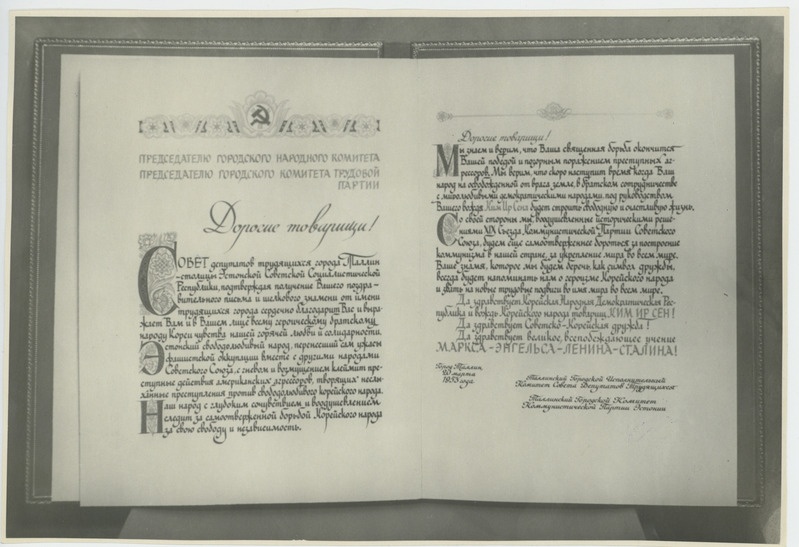 ПРЕДСЕДАТЕЛЮ ГОРОДСКОГО НАРОДНОГО КОМИТЕТА
ПРЕДСЕДАТЕЛЮ ГОРОДСКОГО КОМИТЕТА ТРУДОВОЙ
ПАРТИИ
Дорогие товарищи!
СОВЕТ депутатов трудящихся города Таллин
–столицы Эстонской Советской Социалистической
Республики, подтверждая получение Вашего поздра–
вительного письма и шелкового знамени от имени
трудящихся города сердечно благодарит Вас и выра–
жает Вам и в Вашем лице всему героическому братскому
народу Кореи чувства нашей горячей любви и солидарности.
Эстонский свободолюбивый народ, перенесший сам ужасы
фашистской оккупации вместе с другими народами
Советского Союза, с гневом и возмущением клеймит пре–
ступные действия американских агрессоров, творящих неслы–
ханные преступления против свободолюбивого корейского народа.
Наш народ с глубоким сочувствием и воодушевлением
следит за самоотверженной борьбой Корейского народа
за свою свободу и независимость.
Дорогие товарищи!
Мы знаем и верим, что Ваша священная борьба окончится
Вашей победой и позорным поражением преступных аг–
рессоров. Мы верим, что скоро наступит время когда Ваш
народ на освобожденной от врага земле, в братском сотрудничестве
с миролюбивыми демократическими народами, под руководством
Вашего вождя Ким Ир Сена будет строить свободную и счастливую жизнь.
Со своей стороны мы, воодушевленные историческими реше–
ниями XIX Съезда Коммунистической Партии Советского
Союза, будем еще самоотверженнее бороться за построение
коммунизма в нашей стране, за укрепление мира во всем мире.
Ваше знамя, которое мы будем беречь, как символ дружбы,
всегда будет напоминать нам о героизме Корейского народа
и звать на новые трудовые подвиги во имя мира во всем мире.
Да здравствует Корейская Народная Демократическая Рес–
публика и вождь Корейского народа товарищ КИМ ИР СЕН!
Да здравствует Советско–Корейская дружба!
Да здравствует великое, всепобеждающее учение
МАРКСА–ЭНГЕЛЬСА–ЛЕНИНА–СТАЛИНА!
Город Таллин
марта
1953 года
Таллинский Городской Исполнительный
Комитет Совета Депутатов Трудящихся
Таллинский Городской Комитет
Коммунистической Партии Эстонии